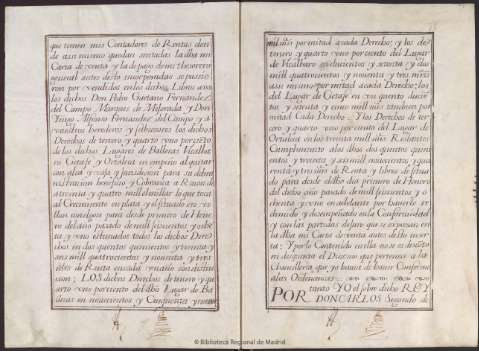 que tienen mis Contadores de Rentas don
de assi mismo quedan anotadas la dha mi
Carta de venta y la de pago de mi thesorero
general antes desto incorporadas se pusie
ron por vendidos en los dichos Libros a vos
los dichos Don Pedro Gaetano Fernandez
del Campo, Marques de Mejorada y Don
Yñigo Alfonso Fernandez del Campo y a
vuestros herederos y subcesores los dichos
Derechos de tercero y quarto uno por ciento
de los dichos Lugares de
en Getafe y Ortaleza en empeño al quitar
con alza y vaxa, y jurisdicion para su admi
nistracion beneficio y Cobranza a razon de
a treinta y quatro mil el millar lo que toca
al Crecimiento en plata y el situado en ve
llon antiguos para desde primero de Hene
ro del año passado de mill seiscientos y ochen
ta y uno
bos en dos quentos quinientos y treinta y
seis mill quatrocientos y noventa y tres
mrs de Renta
cion; LOS dichos Derechos de tercero y qu
arto uno por ciento del dho Lugar de Ba
llecas en novecientos y Cinquenta y nueve
mil mrs por mitad a cada Derecho; y los de
tercero y quarto uno por ciento del Lugar
de Vicalbaro en seiscientos y setenta y dos
mill quatrocientos y noventa y tres mrs
assi mismo por mitad a cada Derecho; los
del Lugar de Getafe en un quento ducien
tos y setenta y cinco mill mrs tambien por
mitad Cada Derecho. Y los Derechos de ter
cero y quarto uno por ciento del Lugar de
Ortaleza en los treinta mill mrs Restantes
Cumplimiento a los dhos dos quentos quini
entos y treinta y seis mill novecientos y qua
renta y tres mrs de Renta y libres de situa
do para desde el dho dia primero de Henero
del dicho año passado de mill seiscientos y o
chenta y uno en adelante por haverse re
dimido y desempeñado en la Conformidad
y con las partidas de suso que se expresan en
la dha mi Carta de venta antes desto inser
ta; Y por lo Contenido en ella no se os descon
to ni desquento el Diezmo que pertenece a la
Chancilleria que yo havia de haver Conforme
a las Ordenanzas;
tanto YO el sobre dicho REY
POR DON CARLOS Segundo de
© Biblioteca Regional de Madrid